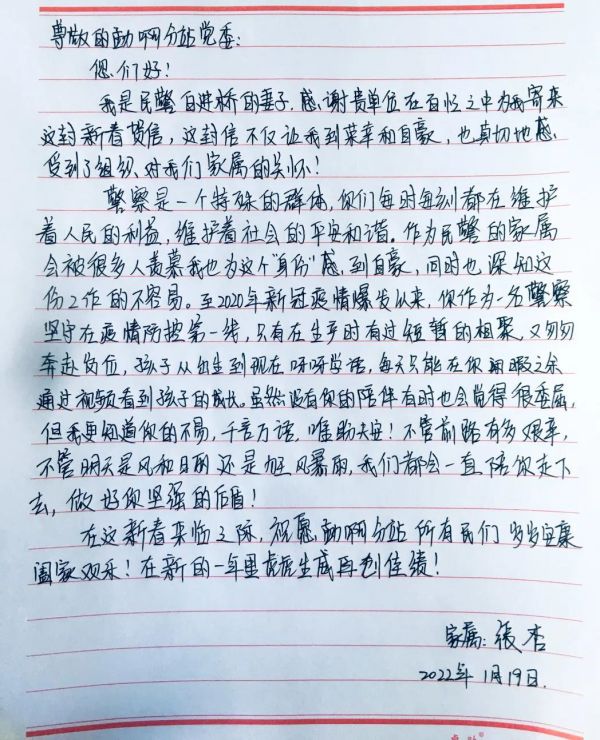 尊敬的动啊分站党委：
您们好！
我是民警自进桥的妻子，感谢贵单位在百忙之中为我寄来
这封新春贺信，这封信不仅让我到荣幸和自豪，也真切地感
受到了组织、对我们家属的关怀！
警察是一个特殊的群体，你们每时每刻都在维护
着人民的利益，维护着社会的平安和谐。作为民警的家属
会被很多人羡慕我也为这个"身份"感到自豪，同时也深知这
份工作的不容易。至2020年新冠疫情爆发以来，你作为一名警察
坚守在疫情防控第一线，只有在生产时有过短暂的相聚，又匆匆
奔赴岗位，孩子从出生到现在呀呀学语，每天只能在你闲暇之余
通过视频看到孩子的成长。虽然没有你的陪伴有时也会觉得很委屈，
但我更知道你的不易，千言万语，唯盼平安！不管前路有多艰辛，
不管明天是风和日丽还是狂风暴雨，我们都会一直陪你走下
去，做好你坚强的后盾！
在这新春来临之际，祝愿动啊分站所有民们岁岁安康
阖家欢乐！在新的一年里虎虎生威再创佳绩！
家属：張杏
2022年1月19日.